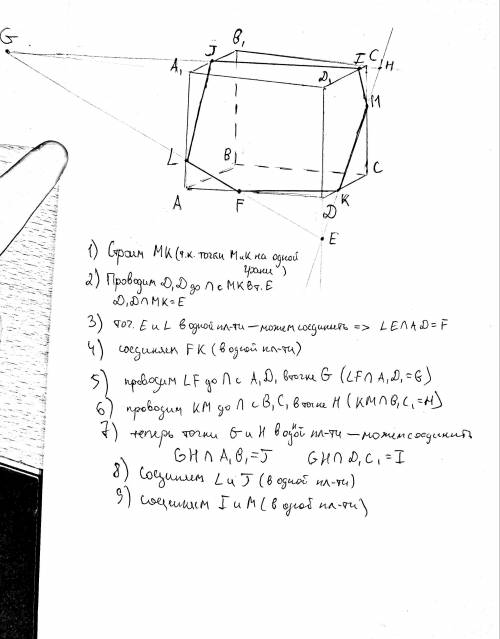 G
B₁
J
I
C₁
H
A₁
D₁
M
L
B
C
A
F
D
K
E
1) Строим MK (т.к. точки M и K на одной
грани)
2) Проводим D₁D до ∩ с MK в т. E
D₁D∩MK=E
3) точ. E и L в одной пл-ти – можем соединить => LE∩AD=F
4) соединяем FK (в одной пл-ти)
5) проводим LF до ∩ с A₁D₁ в точке G (LF∩A₁D₁=G)
6) проводим KM до ∩ с B₁C₁ в точке H (KM∩B₁C₁=H)
7) теперь точки G и H в одной пл-ти – можем соединить
GH∩A₁B₁=J GH∩D₁C₁=I
8) Соединяем L и J (в одной пл-ти)
9) соединяем I и M (в одной пл-ти)